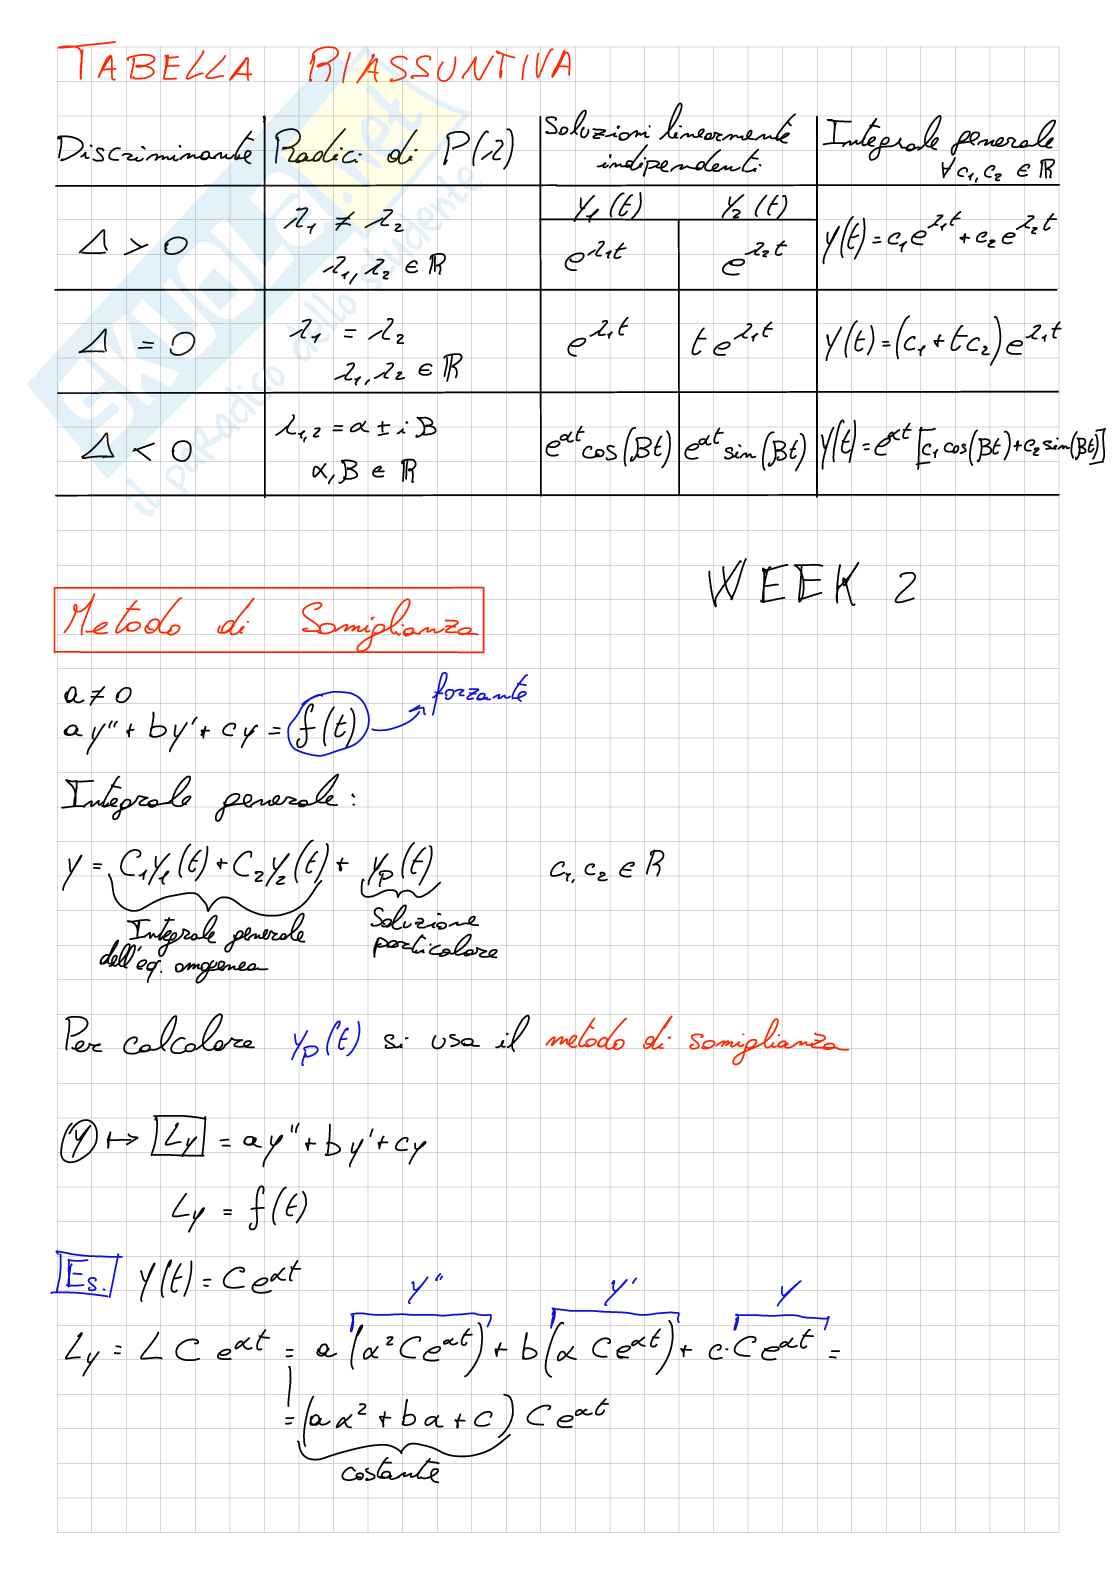 TABELLA RIASSUNTIVA
Discriminante Radici di P(λ) Soluzioni linearmente indipendenti Integrale generale ∀ c₁, c₂ ∈ ℝ
y₁(t) y₂(t)
Δ > 0 λ₁ ≠ λ₂ λ₁, λ₂ ∈ ℝ e^{λ₁t} e^{λ₂t} y(t) = c₁e^{λ₁t} + c₂e^{λ₂t}
Δ = 0 λ₁ = λ₂ λ₁, λ₂ ∈ ℝ e^{λ₁t} te^{λ₁t} y(t) = (c₁ + tc₂)e^{λ₁t}
Δ < 0 λ₁,₂ = α ± iβ α, β ∈ ℝ e^{αt}cos(βt) e^{αt}sin(βt) y(t) = e^{αt}[c₁cos(βt) + c₂sin(βt)]
SKUOLA.net
il paradiso dello studente
WEEK 2
Metodo di Somiglianza
a ≠ 0
ay'' + by' + cy = f(t) forzante
Integrale generale:
y = C₁y₁(t) + C₂y₂(t) + yp(t) c₁, c₂ ∈ ℝ
Integrale generale
dell'eq. omogenea
Soluzione
particolare
Per calcolare yp(t) si usa il metodo di somiglianza
y ↦ Ly = ay'' + by' + cy
Ly = f(t)
Es. y(t) = Ce^{αt}
y'' y' y
Ly = L C e^{αt} = a(α²Ce^{αt}) + b(αCe^{αt}) + c·Ce^{αt} =
= (aα² + bα + c)Ce^{αt}
costante